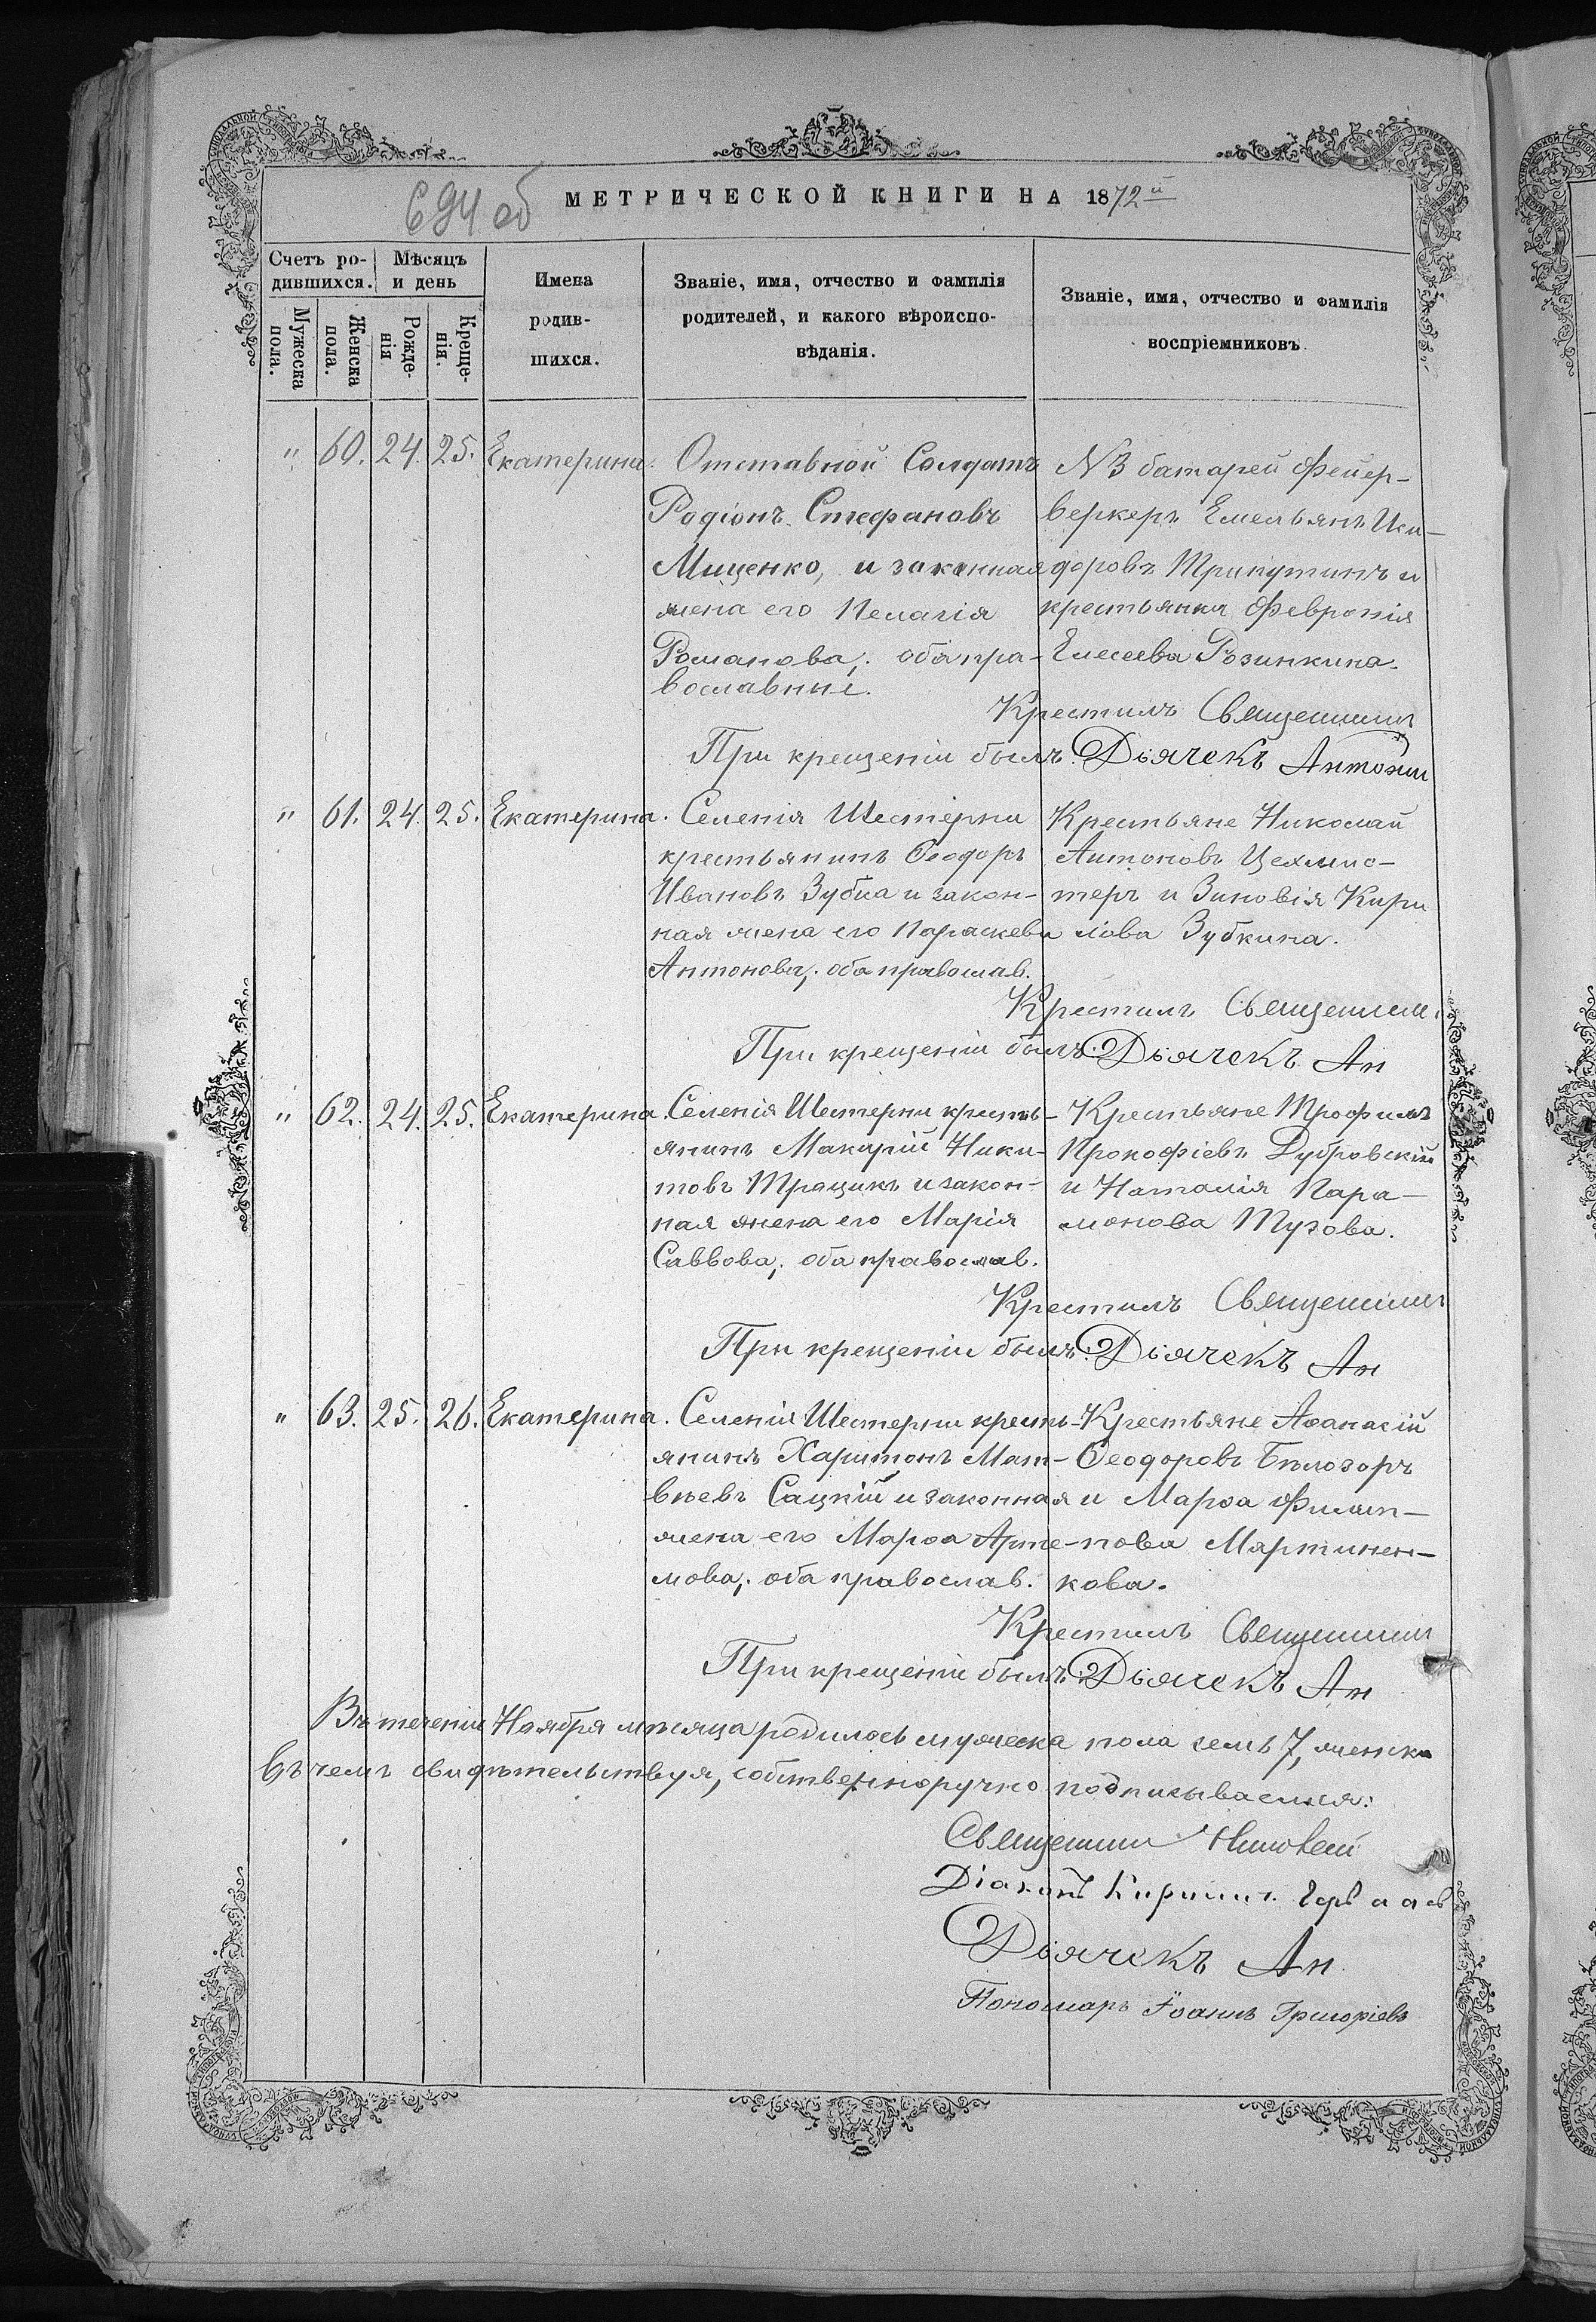 694 об
МЕТРИЧЕСКОЙ КНИГИ НА 1872й
Счетъ ро-
дившихся.
Мѣсяцъ
и день
Мужеска
пола.
Женска
пола.
Рожде-
нія
Креще-
нія.
Имена
родив-
шихся.
Званіе, имя, отчество и фамилія
родителей, и какого вѣроиспо-
вѣданія.
Званіе, имя, отчество и фамилія
воспріемниковъ
" 60. 24. 25. Екатерина.
Отставной Солдатъ
Родіонъ Стефановъ
Мищенко, и законная
жена его Пелагія
Романова; оба пра-
вославные.
N3 батареи Фейер-
веркеръ Емельянъ Иси-
доровъ Трипутинъ и
крестьянка Февронія
Елисеева Розинкина.
Крестилъ Священникъ
При крещеніи былъ: Дьячекъ Антоній
" 61. 24. 25. Екатерина.
Селенія Шестерни
крестьянинъ Ѳеодоръ
Ивановъ Зубка и закон-
ная жена его Параскева
Антонова; оба православ.
Крестьяне Николай
Антоновъ Цехмис-
теръ и Зиновія Кири
лова Зубкина.
Крестилъ Священник.
При крещеніи былъ: Дьячекъ Ан
" 62. 24. 25. Екатерина.
Селенія Шестерни кресть-
янинъ Макарій Ники-
товъ Трацикъ и закон-
ная жена его Марія
Саввова; оба православ.
Крестьяне Трофимъ
Прокофіевъ Дубровскій
и Наталія Пара-
монова Тузова.
Крестилъ Священникъ
При крещеніи былъ: Дьячекъ Ан
" 63. 25. 26. Екатерина.
Селенія Шестерни кресть-
янинъ Харитонъ Мат-
вѣевъ Сацкій и законная
жена его Марѳа Арте-
мова; оба православ.
Крестьяне Аѳанасій
Ѳеодоровъ Бѣлозоръ
и Марѳа Филип-
пова Мартинен-
кова.
Крестилъ Священникъ
При крещеніи былъ: Дьячекъ Ан
Въ теченіи Ноября мѣсяца родилось мужеска пола семь 7, женска
Въ чемъ свидѣтельствуя, собственноручно подписываемся:
Священникъ
Діаконъ Кириллъ
Дьячекъ Ан
Пономарь Іоаннъ Григоріевъ